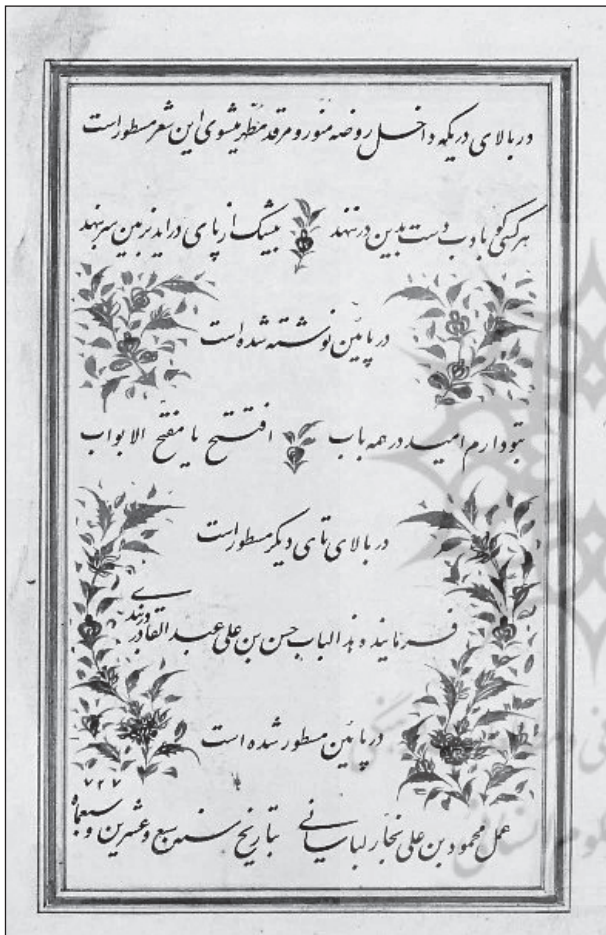 در بالای دریکه داخل روضه منور و مرقد مطهر میشوی این شعر مسطور است
هر کسی کو بادب دست بدین در ننهد بیشک از پای دراید بزمین سر بنهد
در پائین نوشته شده است
بتو دارم امید در همه باب افتتح یا مفتح الابواب
در بالای تای دیکر مسطور است
فرماینده هذ الباب حسن بن علی عبد القادر
در پائین مسطور شده است
۷۲۷
عمل محمود بن علی نجار بتاریخ سنه سبع و عشرین و سبعمائه